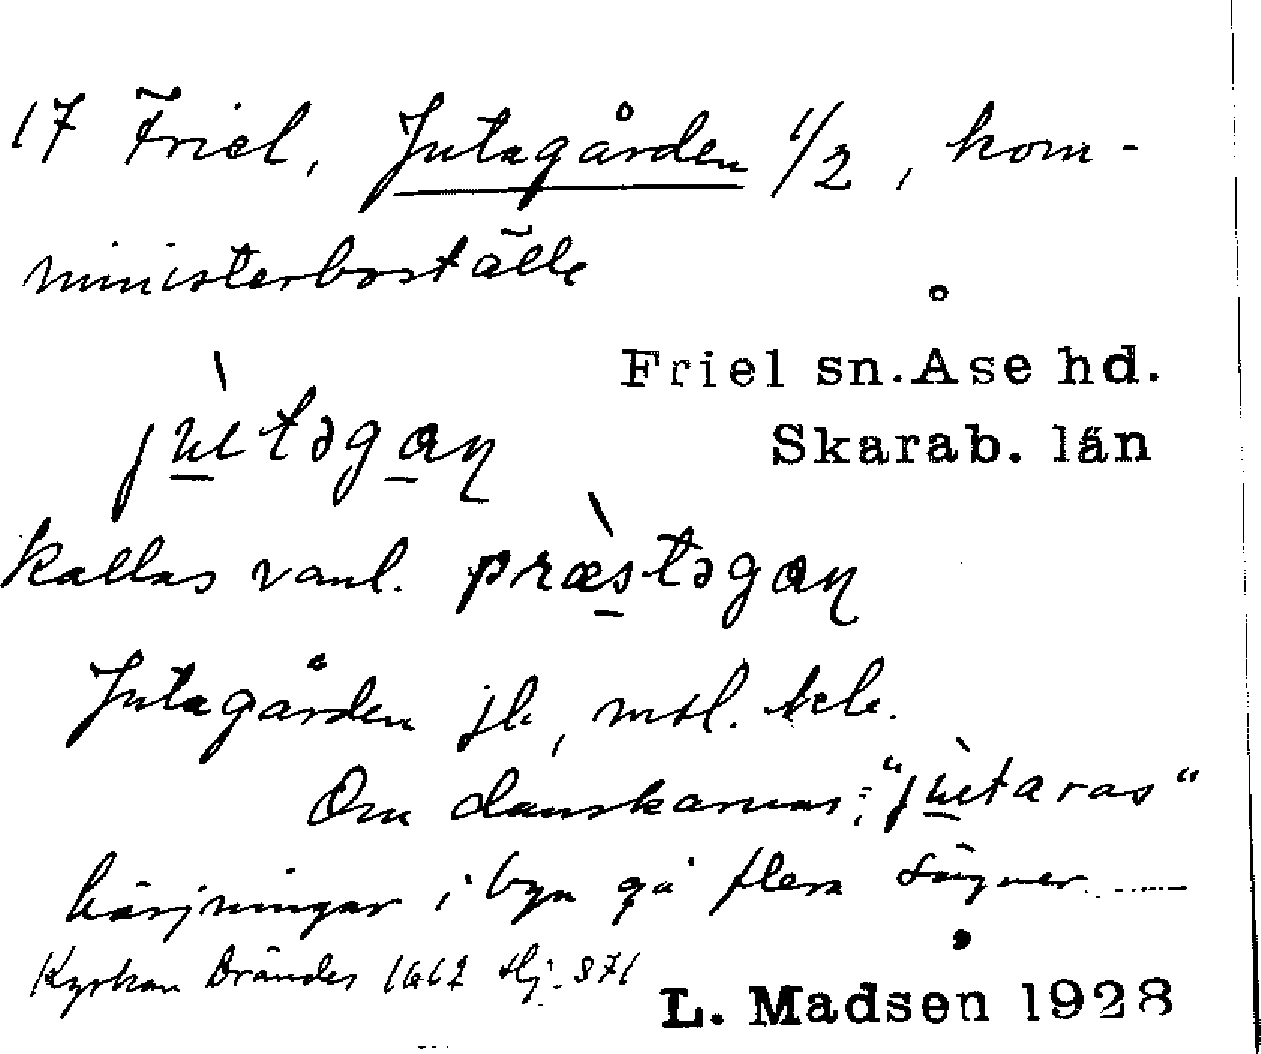 17 Friel, Jutagården 1/2, kom-
ministerboställe
Friel sn. Åse hd.
Skarab. län
jùtəgaɳ
kallas vanl. præ̀stəgaɳ
Jutagården jb,
Om danskarnas: "jùtaras"
härjningar i byn gå flera sägner
Kyrkan brändes 1612
L. Madsen 1928